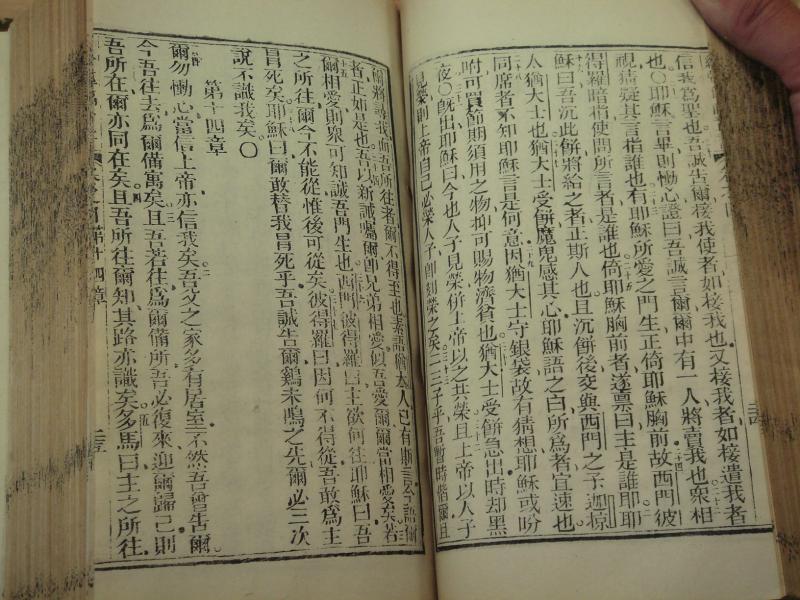 信我爲聖也吾誠告爾接我使者如接我也又接我者如接遣我者
也○耶穌言畢則慟心證曰吾誠言爾爾中有一人將賣我也衆相
視猜疑其言指誰也有耶穌所愛之門生正倚耶穌胸前故西門彼
得羅暗指使問所言者是誰也倚耶穌胸前者遂禀曰主是誰耶耶
穌曰吾沉此餅將給之者正斯人也且沉餅後交與西門之子迦掠
太猶大士也猶大士受餅魔鬼感其心耶穌語之曰所爲者宜速也
同席者不知耶穌言是何意因猶大士守銀袋故有猜想耶穌或吩
咐可買節期須用之物抑可賜物濟貧也猶大士受餅急出時却黑
夜○旣出耶穌曰今也人子見榮併上帝以之共榮且上帝以人子
見榮則上帝自己必榮人子卽刻榮之矣二三子乎吾暫時偕爾且
爾將尋我而吾所往者爾不得至也素語猶太人已有斯言今語爾
者正如是也吾以新誡囑爾卽兄弟相愛似吾愛爾爾當相愛矣若
爾相愛則衆可知誠吾門生也西門彼得羅曰主欲何往耶穌曰吾
之所往爾今不能從惟後可從矣彼得羅曰因何不得從吾敢爲主
冒死矣耶穌曰爾敢替我冒死乎吾誠告爾鷄未鳴之先爾必三次
說不識我矣○
第十四章
爾勿慟心當信上帝亦信我矣吾父之家多有居室不然吾曾告爾
今吾往去爲爾備寓矣且吾若往爲爾備所吾必復來迎爾歸己則
吾所在爾亦同在矣且吾所往爾知其路亦識矣多馬曰主之所往
第十四章